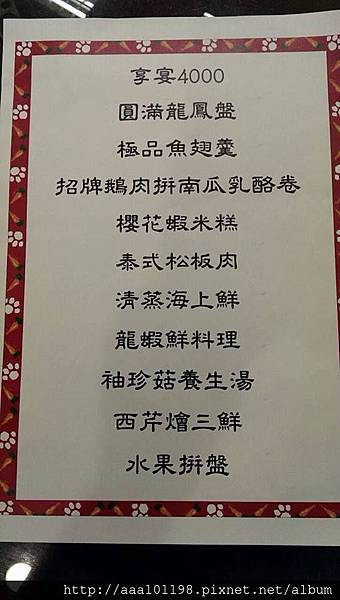 享宴4000
圓滿龍鳳盤
極品魚翅羹
招牌鵝肉拼南瓜乳酪卷
櫻花蝦米糕
泰式松板肉
清蒸海上鮮
龍蝦鮮料理
袖珍菇養生湯
西芹燴三鮮
水果拼盤
http://aaa101198.pixnet.net/album